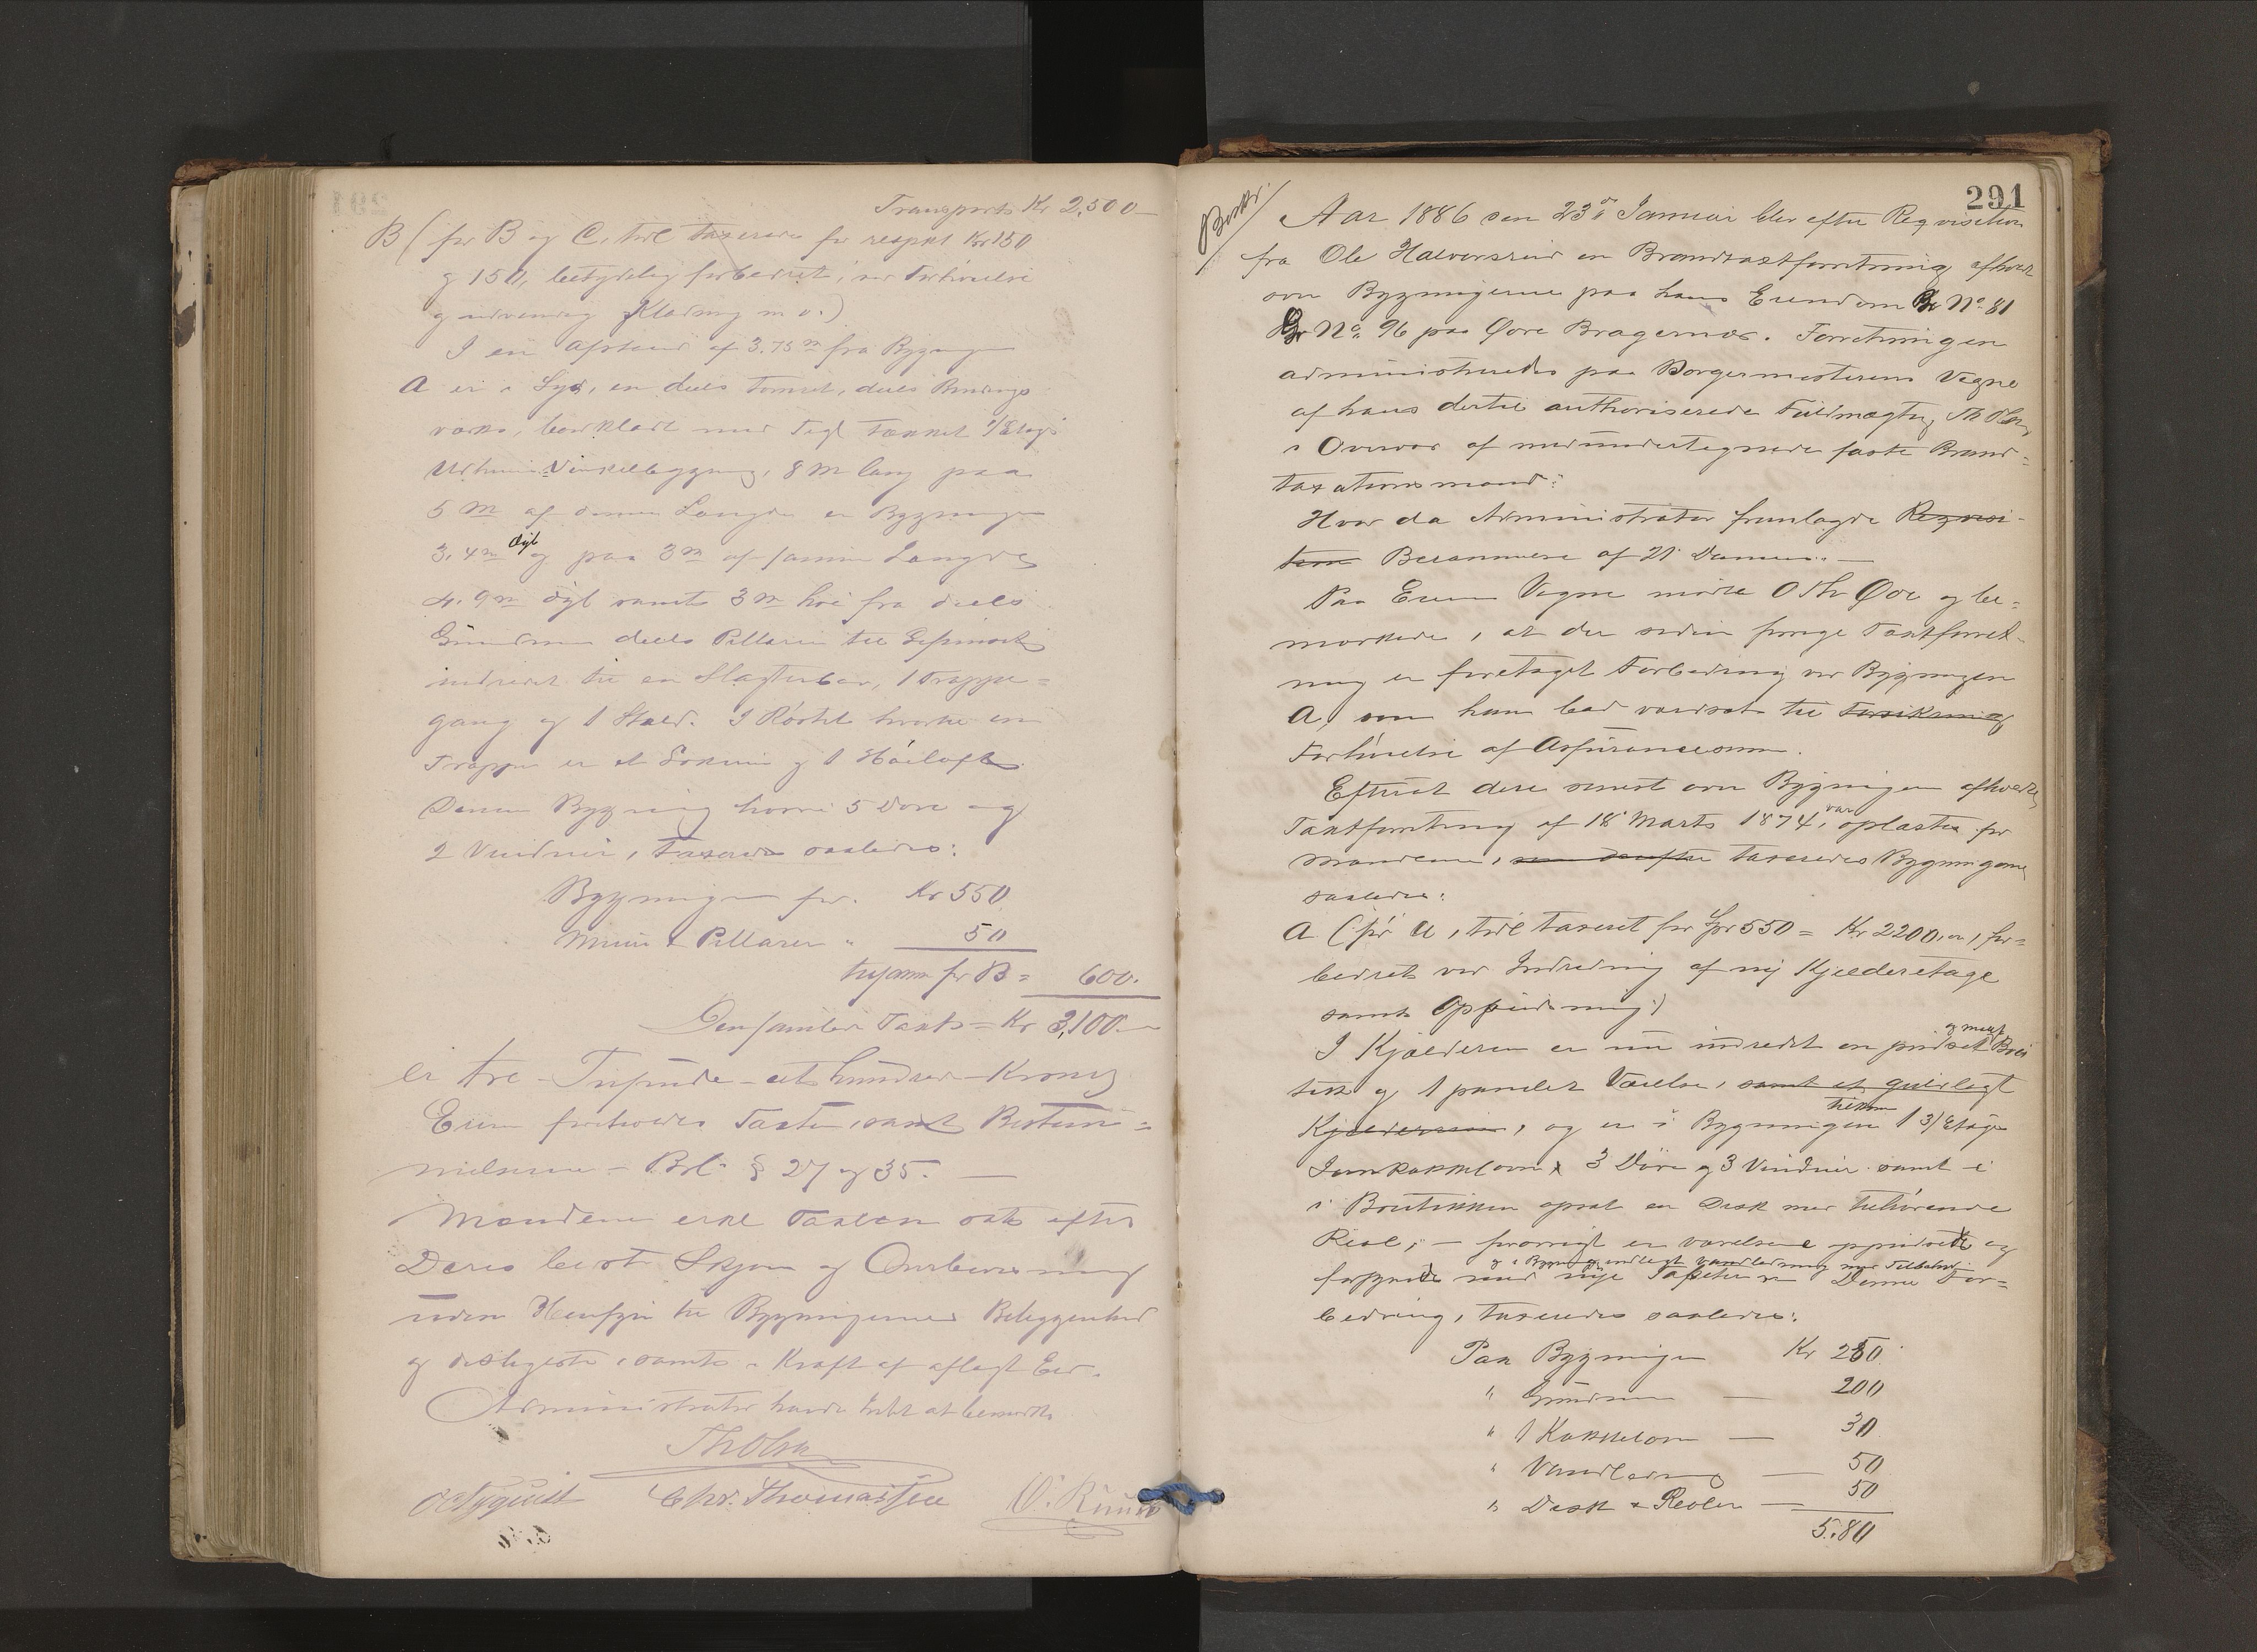 Transport Kr 2,500 —
B (før B og C, tidl taxerede for respkt Kr 150
og 150, betydelig forbedret, ved Forhøielse
og udvendig Klædning m. v.)
I en Afstand af 3.75 m fra Bygningen
A er i Syd, en deels tømret, deels Bindings
værks, bordklædt med Tegl tækket 1/ Etages
Udhuus Vinkelbygning, 8 m lang paa
5 m af denne Længde er Bygningen
3.4 m dyb og paa 3 m af samme Længde
4.9 m dyb samt 3 m høi fra deels
Grundmur deels Pillarer til Gesimsen
indredet til en Slagterbod, 1 Trappe=
gang og 1 Stald. I Røstet hvortil en
Trappe er et Lokum og 1 Høiloft
Denne Bygning hvori 5 Døre og
2 Vinduer, taxeredes saaledes:
Bygningen for Kr 550
Muur & Pillarer " 50
tilsammen for B = 600.
Den samlede Taxt = Kr 3,100 —
er tre - Tusinde - et hundrede - Kroner
Eieren foreholdtes Taxten, samt Bestem=
melserne i Brl. § 27 og 35. —
Mændene erkl Taxten sat efter
Deres bedste Skjøn og Overbeviisning
uden Hensyn til Bygningernes Beliggenhed
og desligeste, samt i Kraft af aflagt Eed.
Administrator havde Intet at bemærke
Th Olsen
Chr. Thomassen O. Ruud
291
Beskr.
Aar 1886 den 23de Januar blev efter Reqvisition
fra Ole Halvorsrud en Brandtaxtforretning afholdt
over Bygningerne paa hans Eiendom Br No 81
Gr No 96 paa Øvre Bragernæs. Forretningen
administreredes paa Borgermesterens Vegne
af hans dertil authoriserede Fuldmægtig Th Olsen
i Overvær af medundertegnede faste Brand=
taxationsmænd:
Hvor da Administrator fremlagde Reqvisi-
tion Berammelse af 21 Dennes. —
Paa Eierens Vegne mødte O Th Øde og be=
mærkede, at der siden forrige Taxtforret-
ning er foretaget Forbedring ved Bygningen
A, som han bad værdsat til Forsikring
Forhøielse af Assurancesummen.
Efterat den senest over Bygningen afholdte
Taxtforretning af 18 Marts 1874, var oplæst for
Mændene, som derefter taxeredes Bygningerne
saaledes:
A (før A, tidl taxeret for Spd 550 = Kr 2200, er, for=
bedret ved Indredning af ny Kjælderetage
samt Oppudsning)
I Kjælderen er nu indredet en pudset og malt Bou
tik og 1 panelet Værelse, samt et gulvlagt
Kjælderrum, og er i Bygningen tilkom 1 3/ Etages
Jernkakkelovn, 3 Døre og 3 Vinduer samt i
i Boutikken opsat en Disk med tilhørende
Reol, — forøvrigt er værelserne oppudsede og
forsynede med nye Tapeter og i Bygn indlagt Vandledning med Tilbehør Denne For=
bedring, taxeredes saaledes:
Paa Bygningen Kr 250
" Grundmur — 200
" 1 Kakkelovn — 30
" Vandledning — 50
" Disk & Reoler — 50
5.80